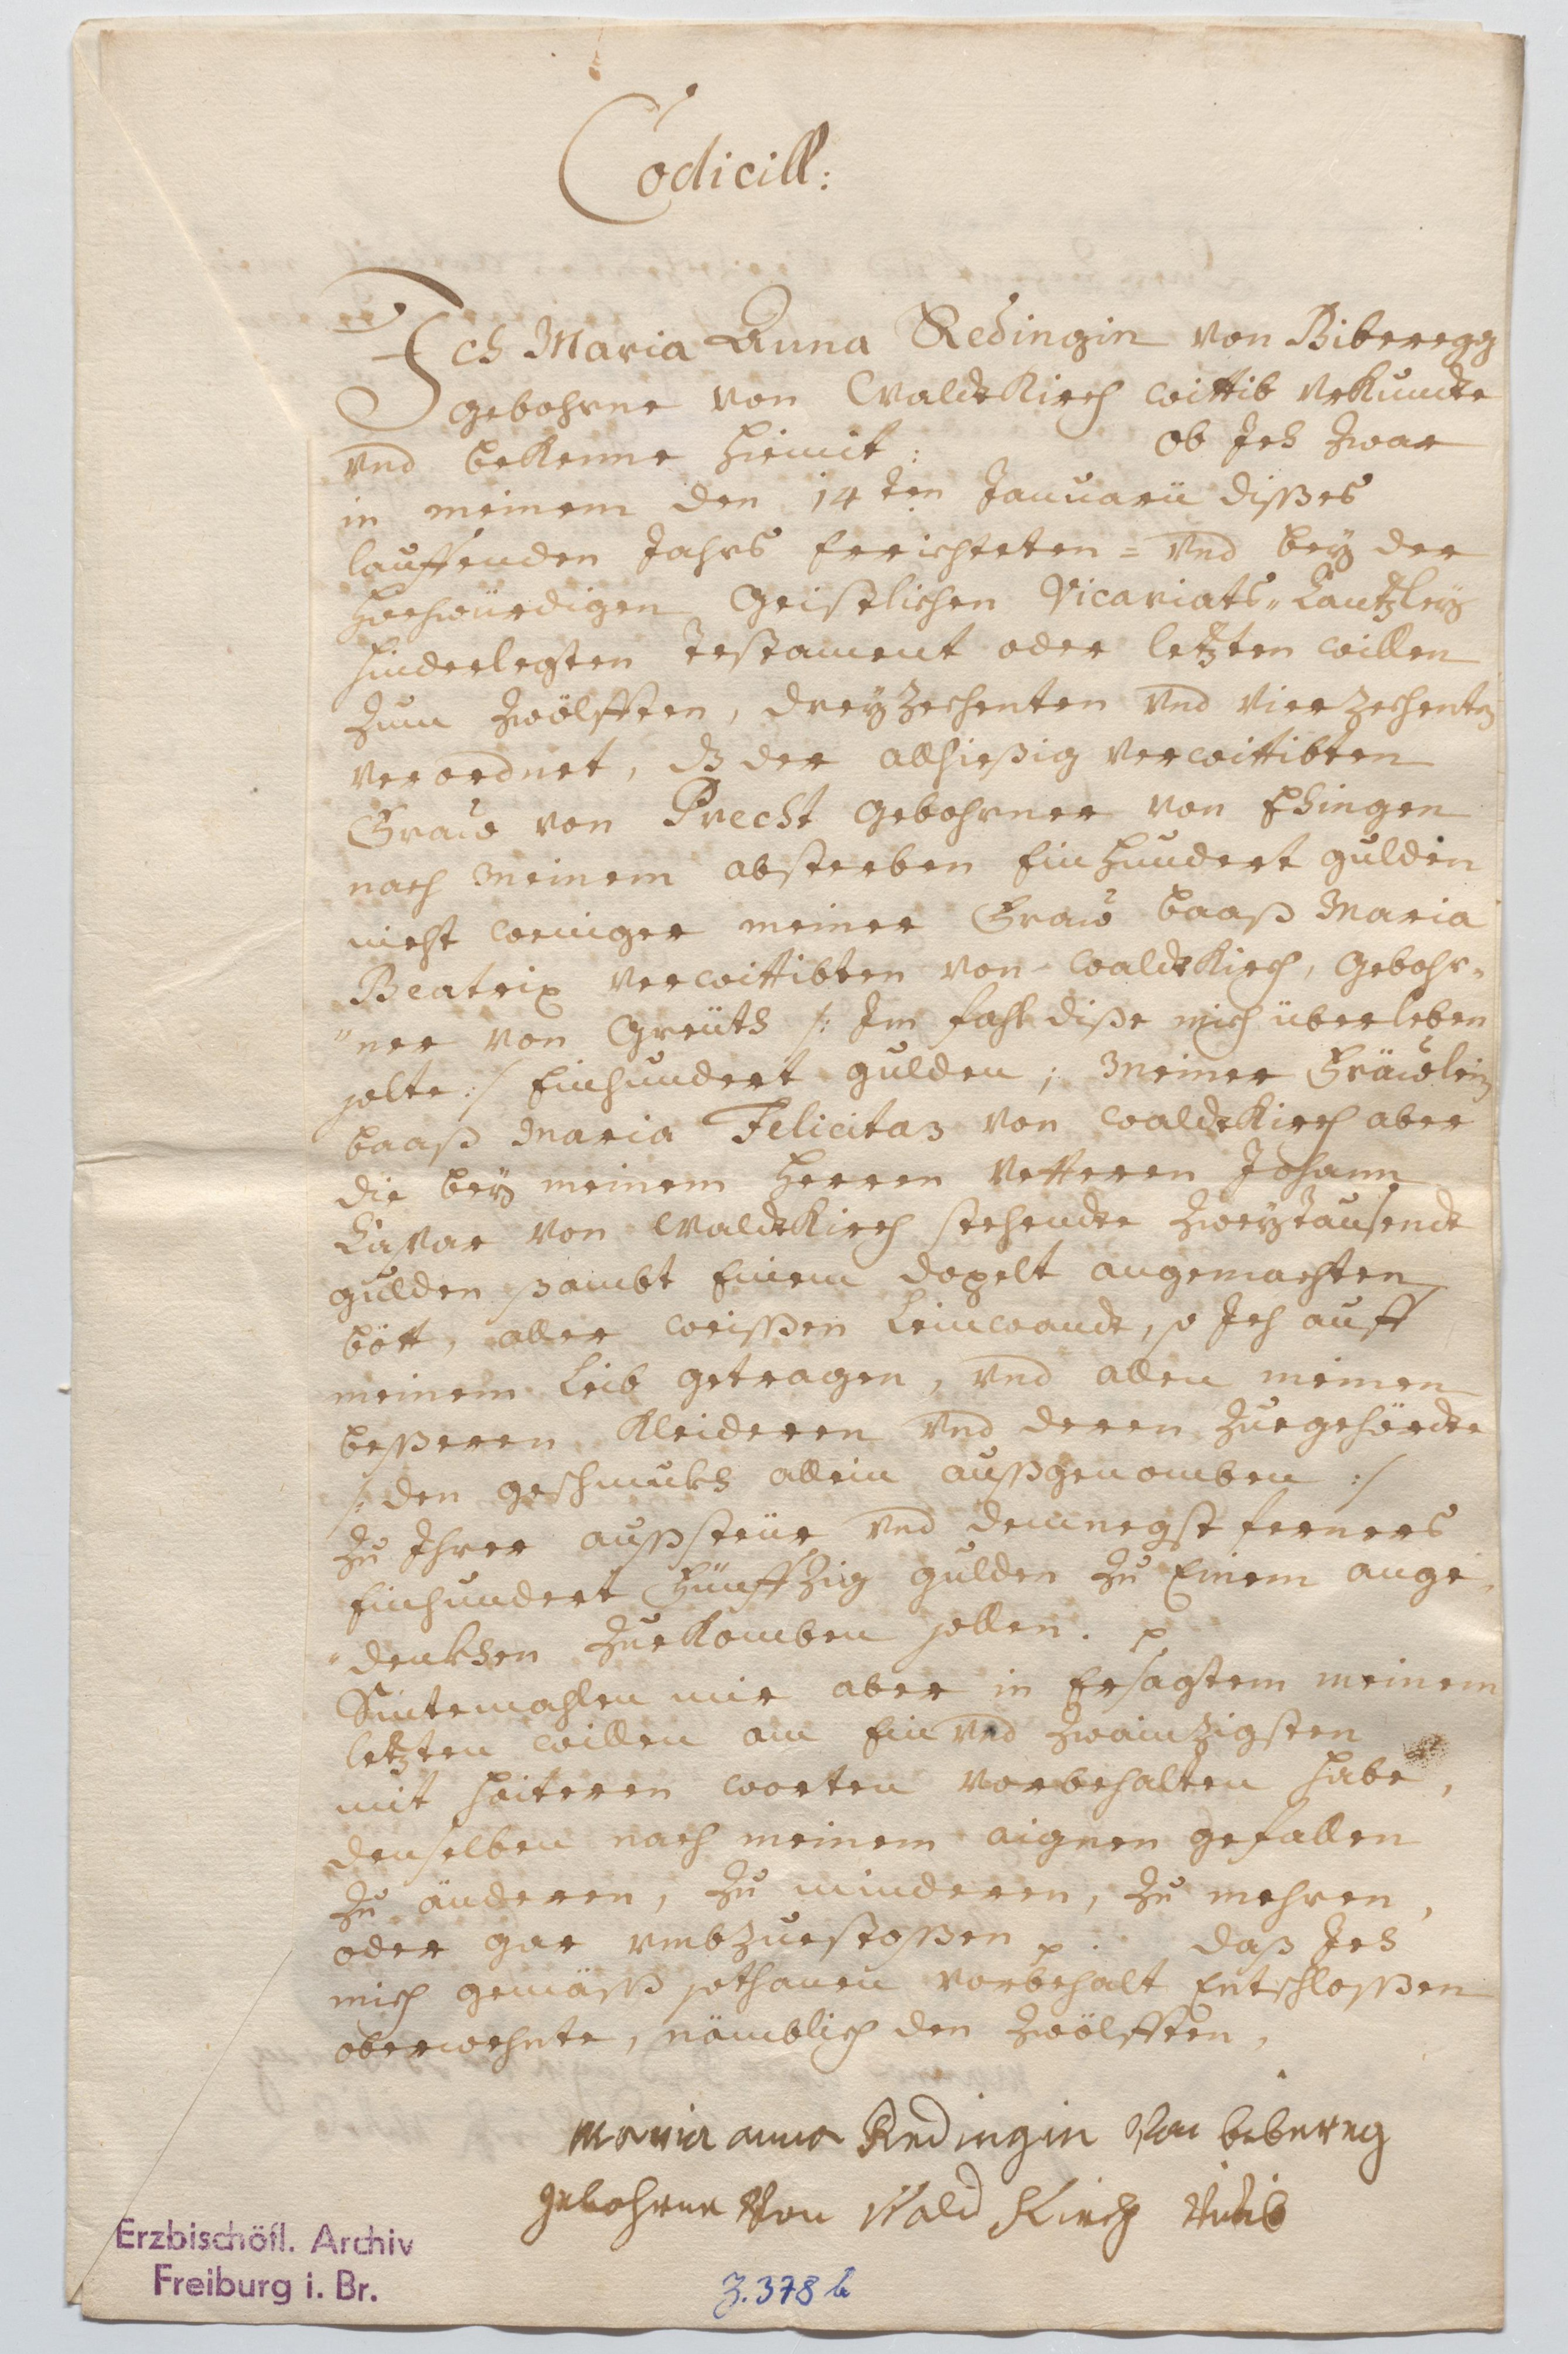 Codicill:
Ich Maria Anna Redingin von Biberegg
gebohrne von Waldtkirch wittib Vrkundte
vnd bekenne hiemit: Ob Ich zwar
in meinem den 14ten Januarii dißes
lauffenden Jahrs Errichteten = vnd bey der
Hochwürdigen Geistlichen Vicariats„ Cantzley
hinderlegten Testament oder letzten willen
Zum Zwölfften, dreyzehenten vnd vierzehenten
verordnet, dz der allhießig verwittibten
Fraw von Precht gebohrner von Ehingen
nach meinem absterben Einhundert gulden
nicht weniger meiner Fraw baaß Maria
Beatrix verwittibten von Waldtkirch, gebohr„
„ner von Greüth /: Im fahl diße mich überleben
solte :/ Einhundert gulden; meiner Fräwlein
baaß Maria Felicitas von Waldtkirch aber
die bey meinem Herren Vetteren Johann
Caspar von Waldtkirch stehendte Zweytausendt
gulden sambt Einem dopelt angemachten
bött, aller weißen Leinwandt, so Ich auff
meinem Leib getragen, vnd allen meinen
beßeren Kleideren vnd deren Zuegehördte
/: den geschmukh allein außgenomben :/
Zu Ihrer außsteür vnd demnegst ferners
Einhundert Fünffzig gulden Zu Einem ange„
„denkhen Zuekomben sollen.
Sintemahlen mir aber in Ersagtem meinem
letzten willen am Ein vnd Zwainzigsten
mit heiteren worten vorbehalten habe,
denselben nach meinem aignen gefallen
Zu änderen, Zu minderen, Zu mehren,
oder gar vmbzuestoßen. daß Ich
mich gemäß sothanen vorbehalt Entschloßen
oberwehnte, nämblich den Zwölfften,
Maria anna Redingin Von bibereg
gebohrne Von Wald Kirch Witib
Erzbischöfl. Archiv
Freiburg i. Br.
Z. 378 b